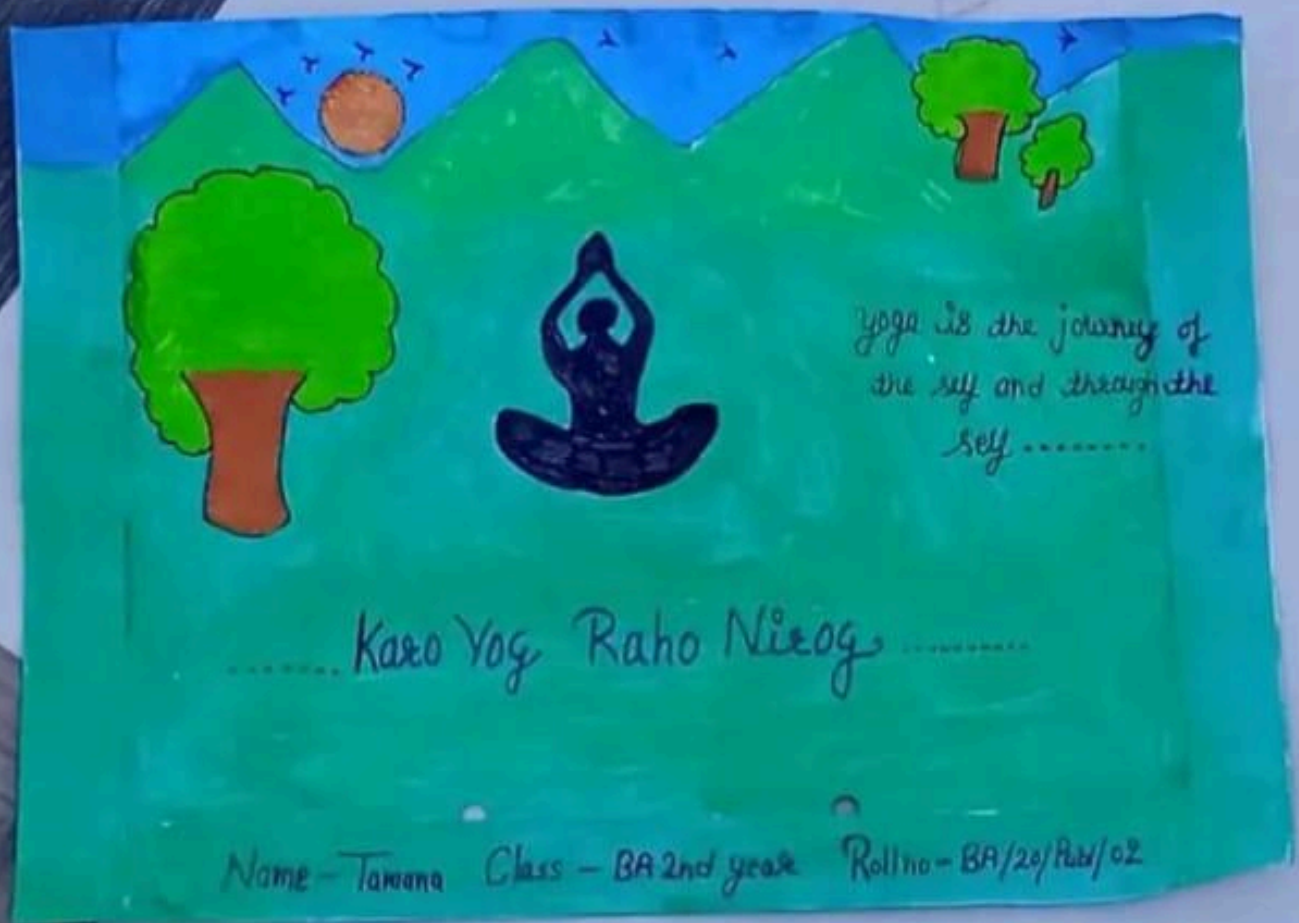 yoga is the journey of
the self and through the
self ........
....... Karo Yog Raho Nirog ...........
Name - Tamana Class - BA 2nd year Roll no - BA/20/ /02